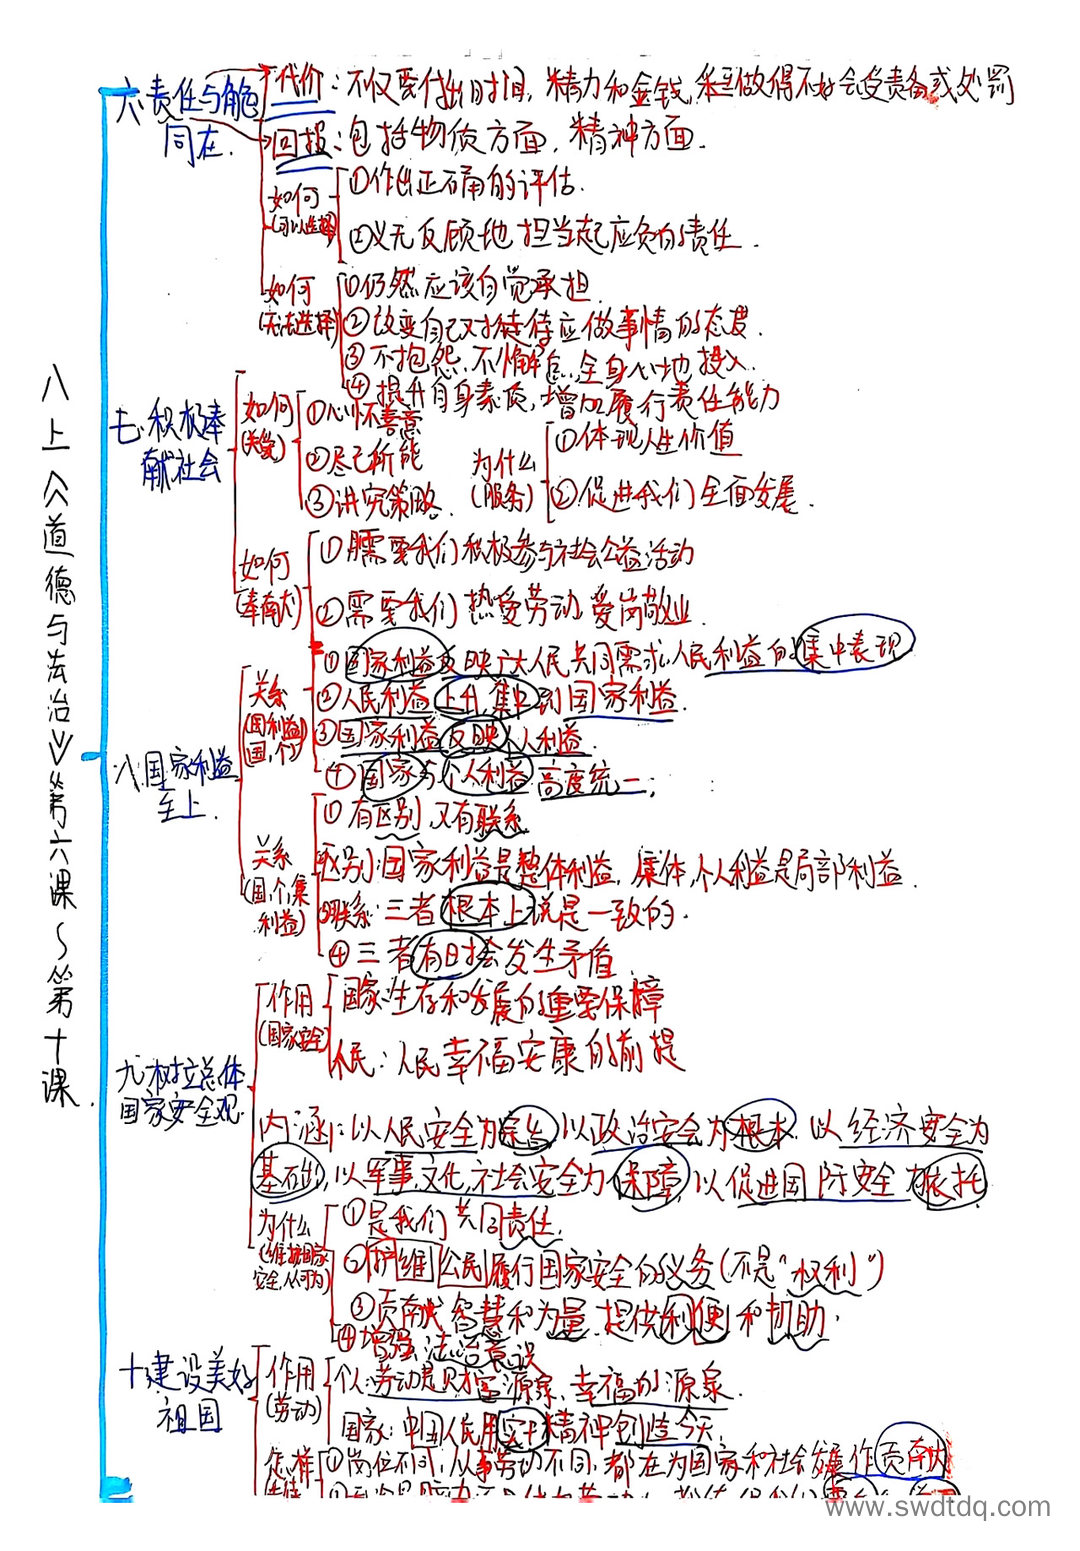 八上《道德与法治》第六课~第十课.
六责任与角色
同在.
代价:不仅要付出时间,精力和金钱,还做得不好会受责备或处罚
回报:包括物质方面,精神方面.
如何
(可以选择)
①作出正确的评估.
②义无反顾地担当起应负的责任.
如何
(无法选择)
①仍然应该自觉承担
②改变自己对待应做事情的态度.
③不抱怨,不懈怠,全身心地投入.
④提升自身素质,增加履行责任能力
七.积极奉
献社会
如何
(关爱)
①心怀善意
②尽己所能
③讲究策略.
为什么
(服务)
①体现人生价值
②促进我们全面发展.
如何
(奉献)
①需要我们积极参与社会公益活动
②需要我们热爱劳动,爱岗敬业.
八.国家利益
至上.
关系
(国利益)
国,个
①国家利益反映广大人民共同需求,人民利益的集中表现
②人民利益上升,集中到国家利益.
③国家利益反映个人利益.
④国家与个人利益高度统一;
关系
(国,个,集
利益)
①有区别,又有联系
区别:国家利益是整体利益,集体,个人利益是局部利益.
③联系:三者根本上说是一致的.
④三者有时会发生矛盾
九.树立总体
国家安全观.
作用
(国家安全)
国家:生存和发展的重要保障
人民:人民幸福安康的前提
内涵:以人民安全为宗旨,以政治安全为根本,以经济安全为
基础,以军事,文化,社会安全为保障,以促进国际安全为依托
为什么
(维护国家
安全,从何为)
①是我们共同责任.
②护维公民履行国家安全的义务(不是"权利")
③贡献智慧和力量,提供利便和协助.
④增强法治意识
十.建设美好
祖国
作用
(劳动)
个:劳动是财富源泉,幸福的源泉.
国家:中国人民用实干精神创造今天.
怎样
①岗位不同,从事劳动不同,都在为国家和社会发展作贡献
www.swdtdq.com